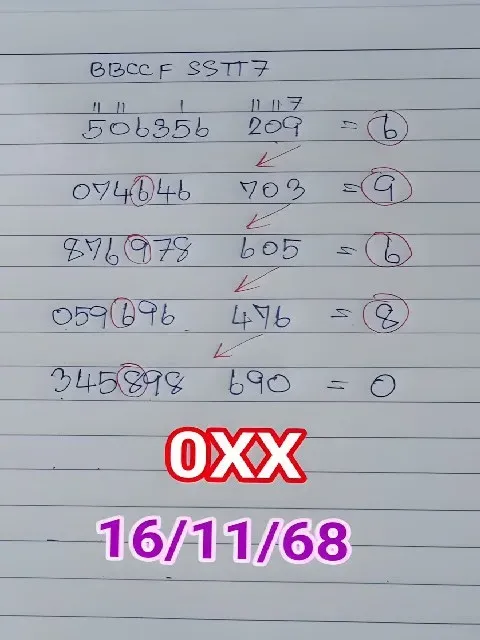 BBCCF SSTT7
11 11 1 11 11 7
506356 209 = 6
074646 703 = 9
876978 605 = 6
059696 476 = 8
345898 690 = 0
0XX
16/11/68